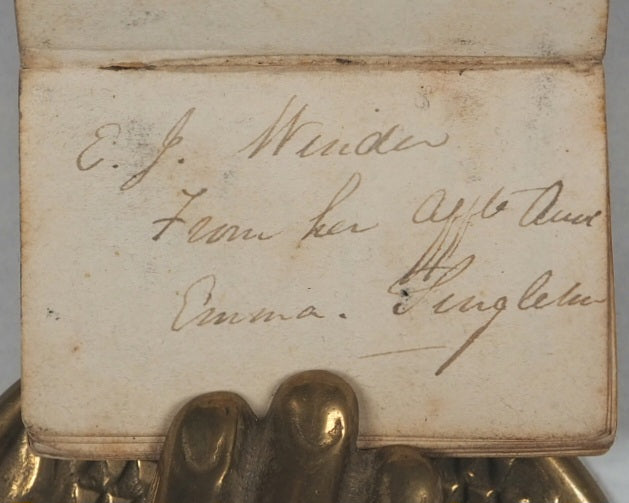 E. J. Winder
From her Afft Aunt
Emma. Singleton